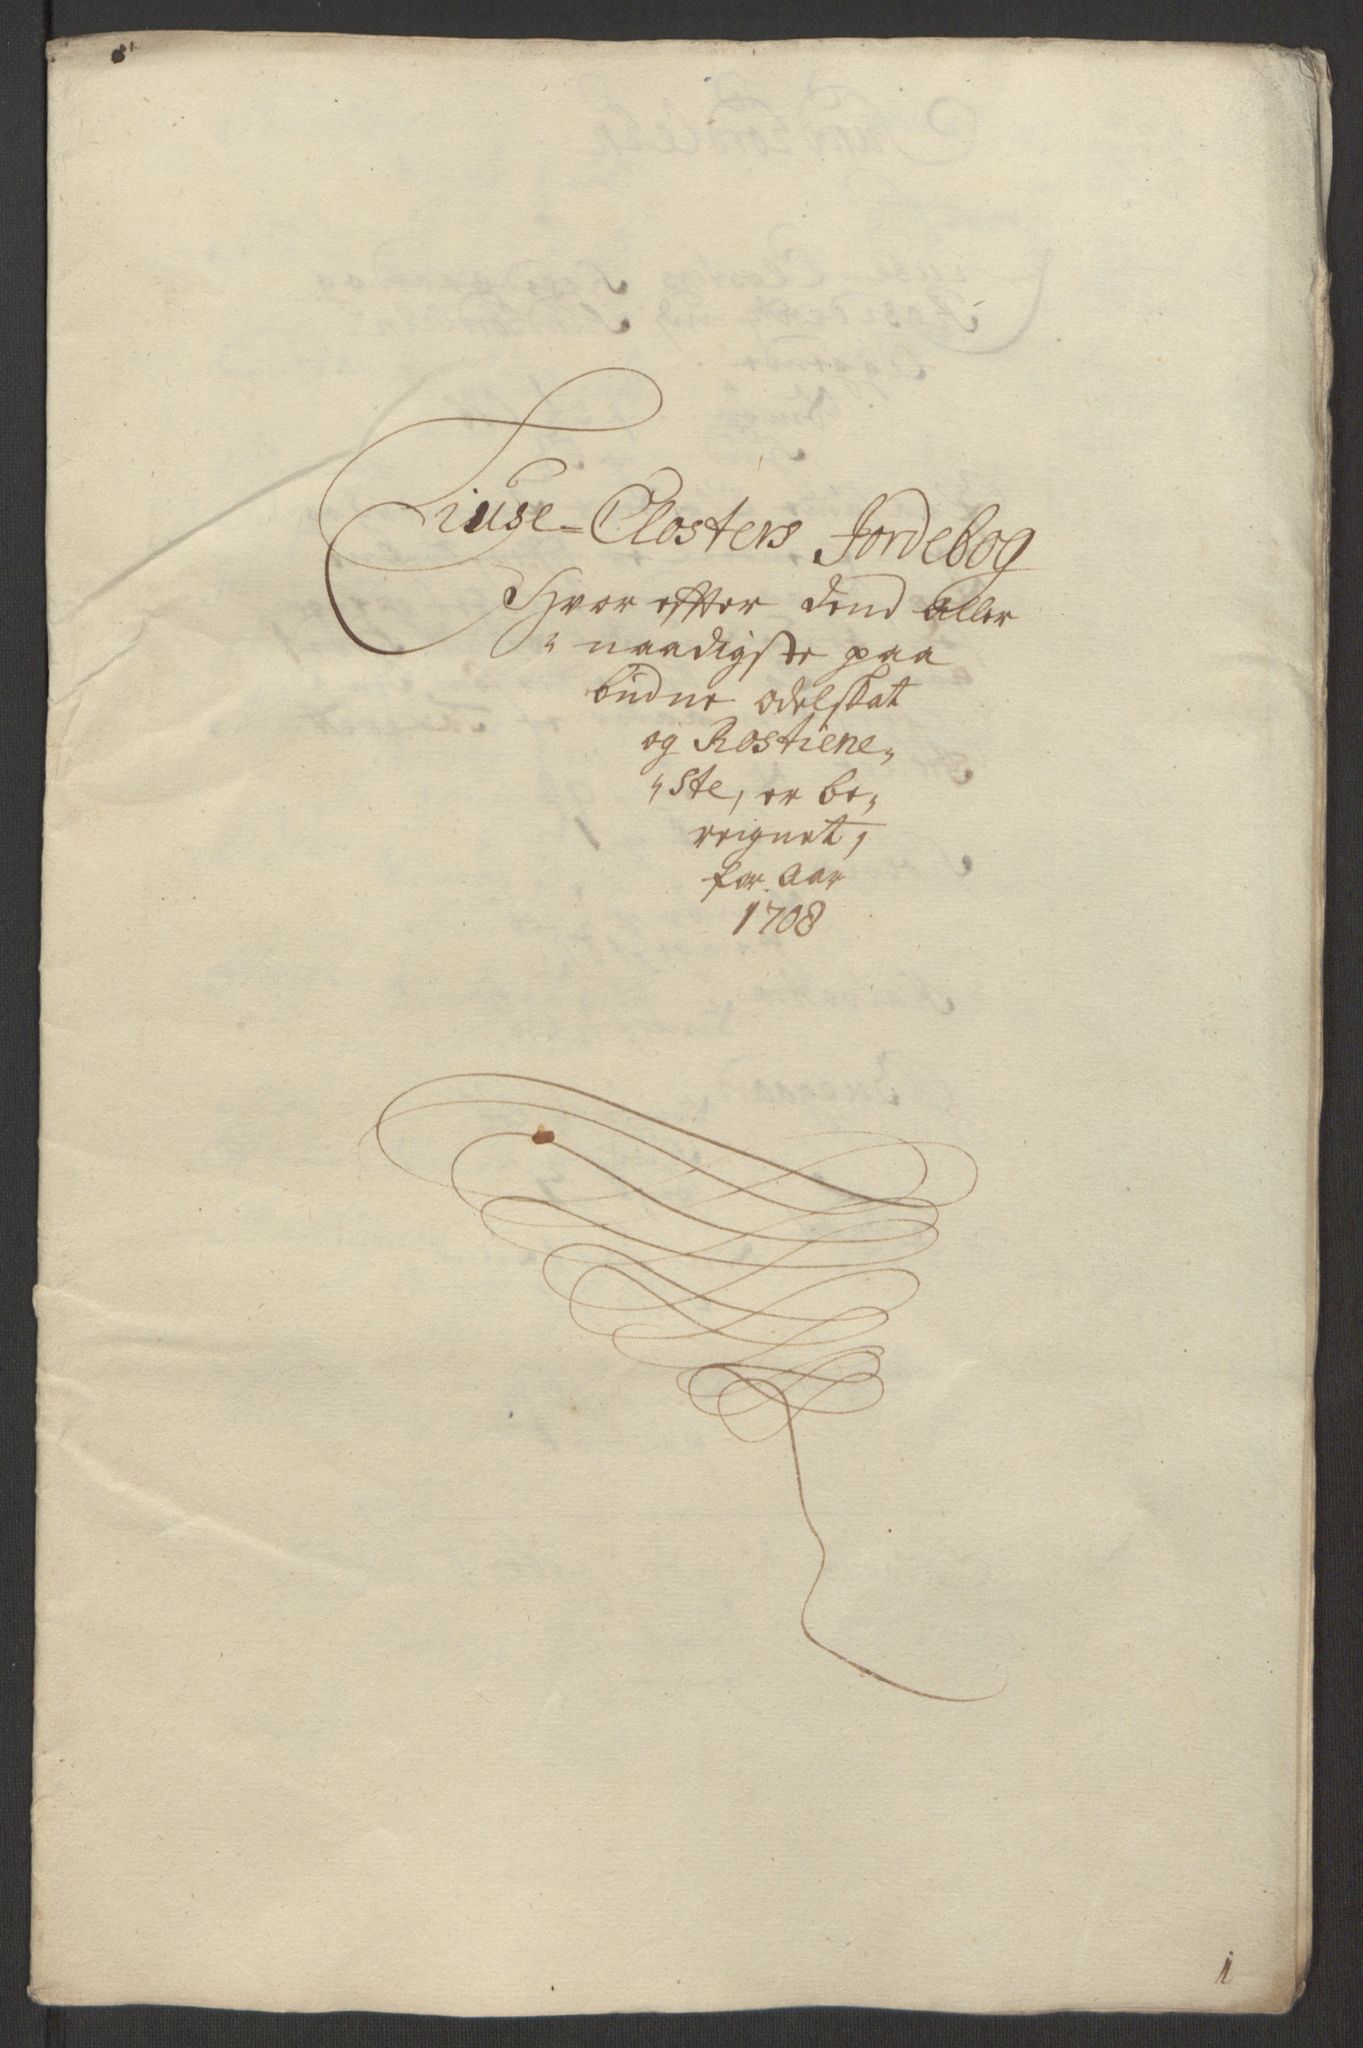 Liuse-Closters Jordebog
Hvor effter dend Aller
"naadigste paa
budne odelskat
og Rostiene„
"ste, er be„
reignet,
for Aar
1708
1